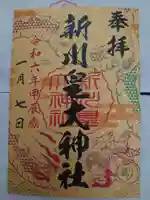 奉拝
新川皇大神社
令和六年甲辰歳
一月七日